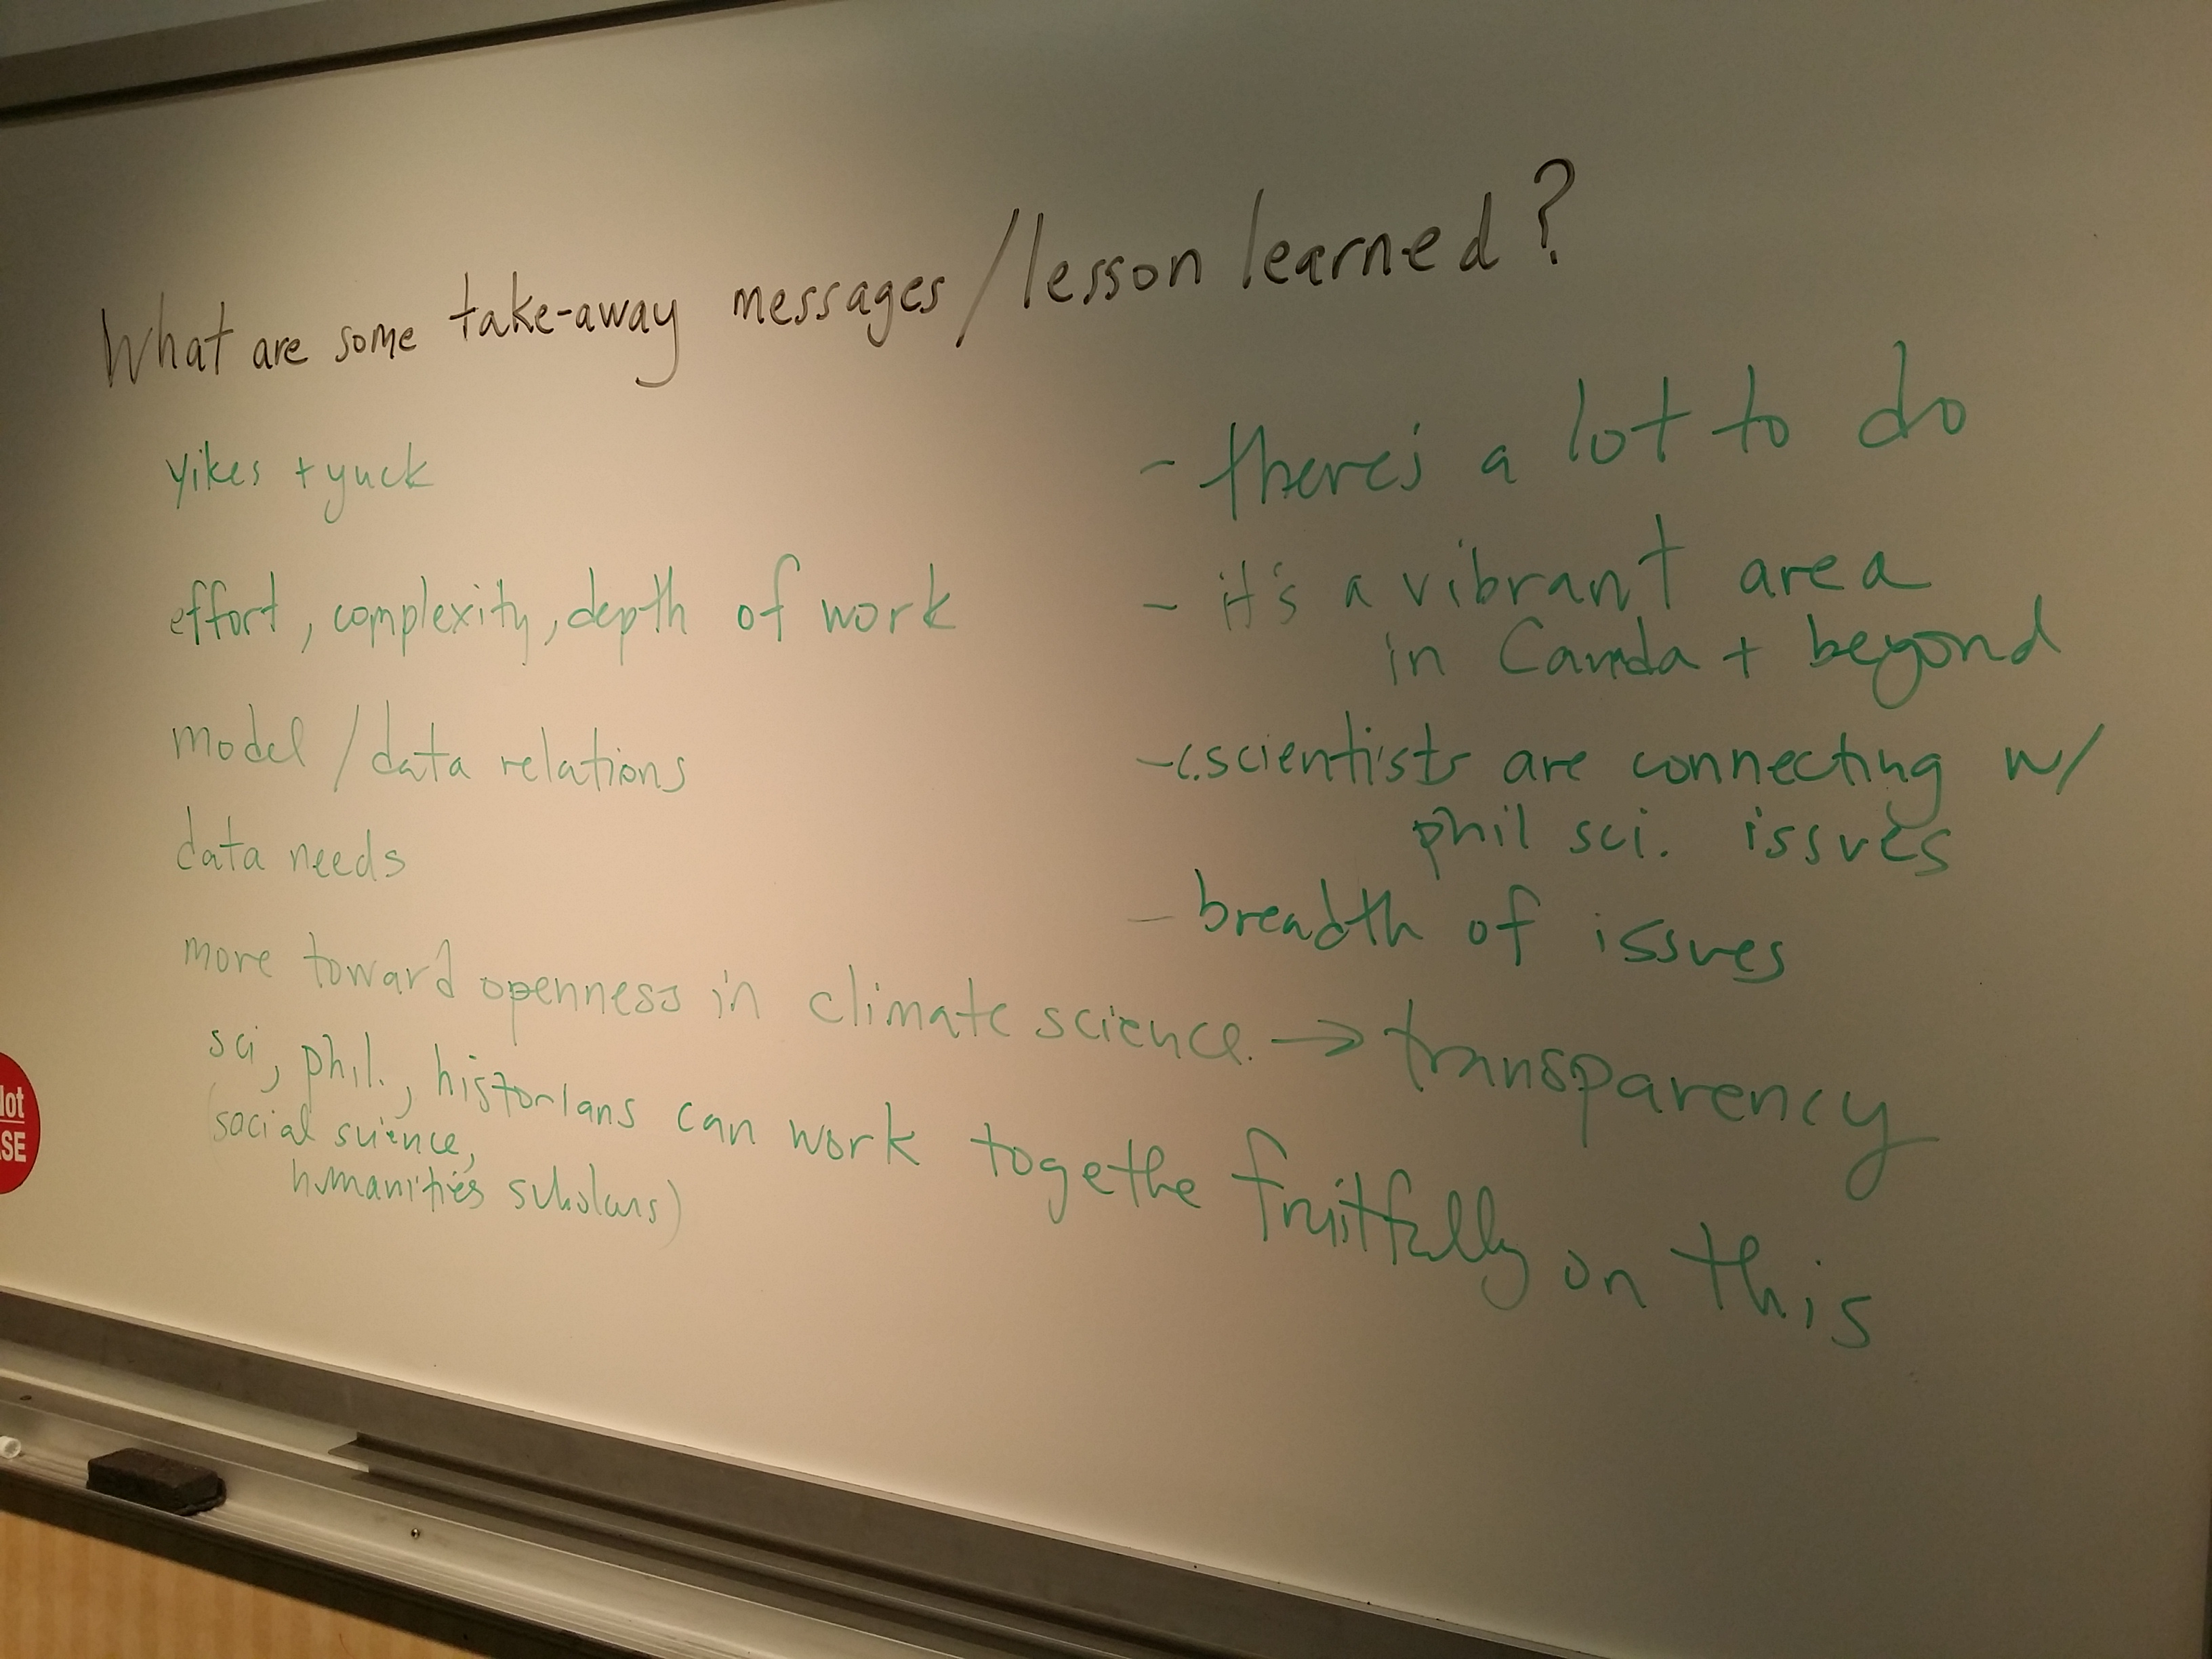 What are some take-away messages/lesson learned?
yikes + yuck
effort, complexity, depth of work
model / data relations
data needs
more toward openness in climate science. → transparency
sci, phil., historians can work togethe fruitfully on this
(social science,
humanities scholars)
- there's a lot to do
- it's a vibrant area
in Canada + beyond
- c.scientists are connecting w/
phil sci. issues
- breadth of issues
lot
SE